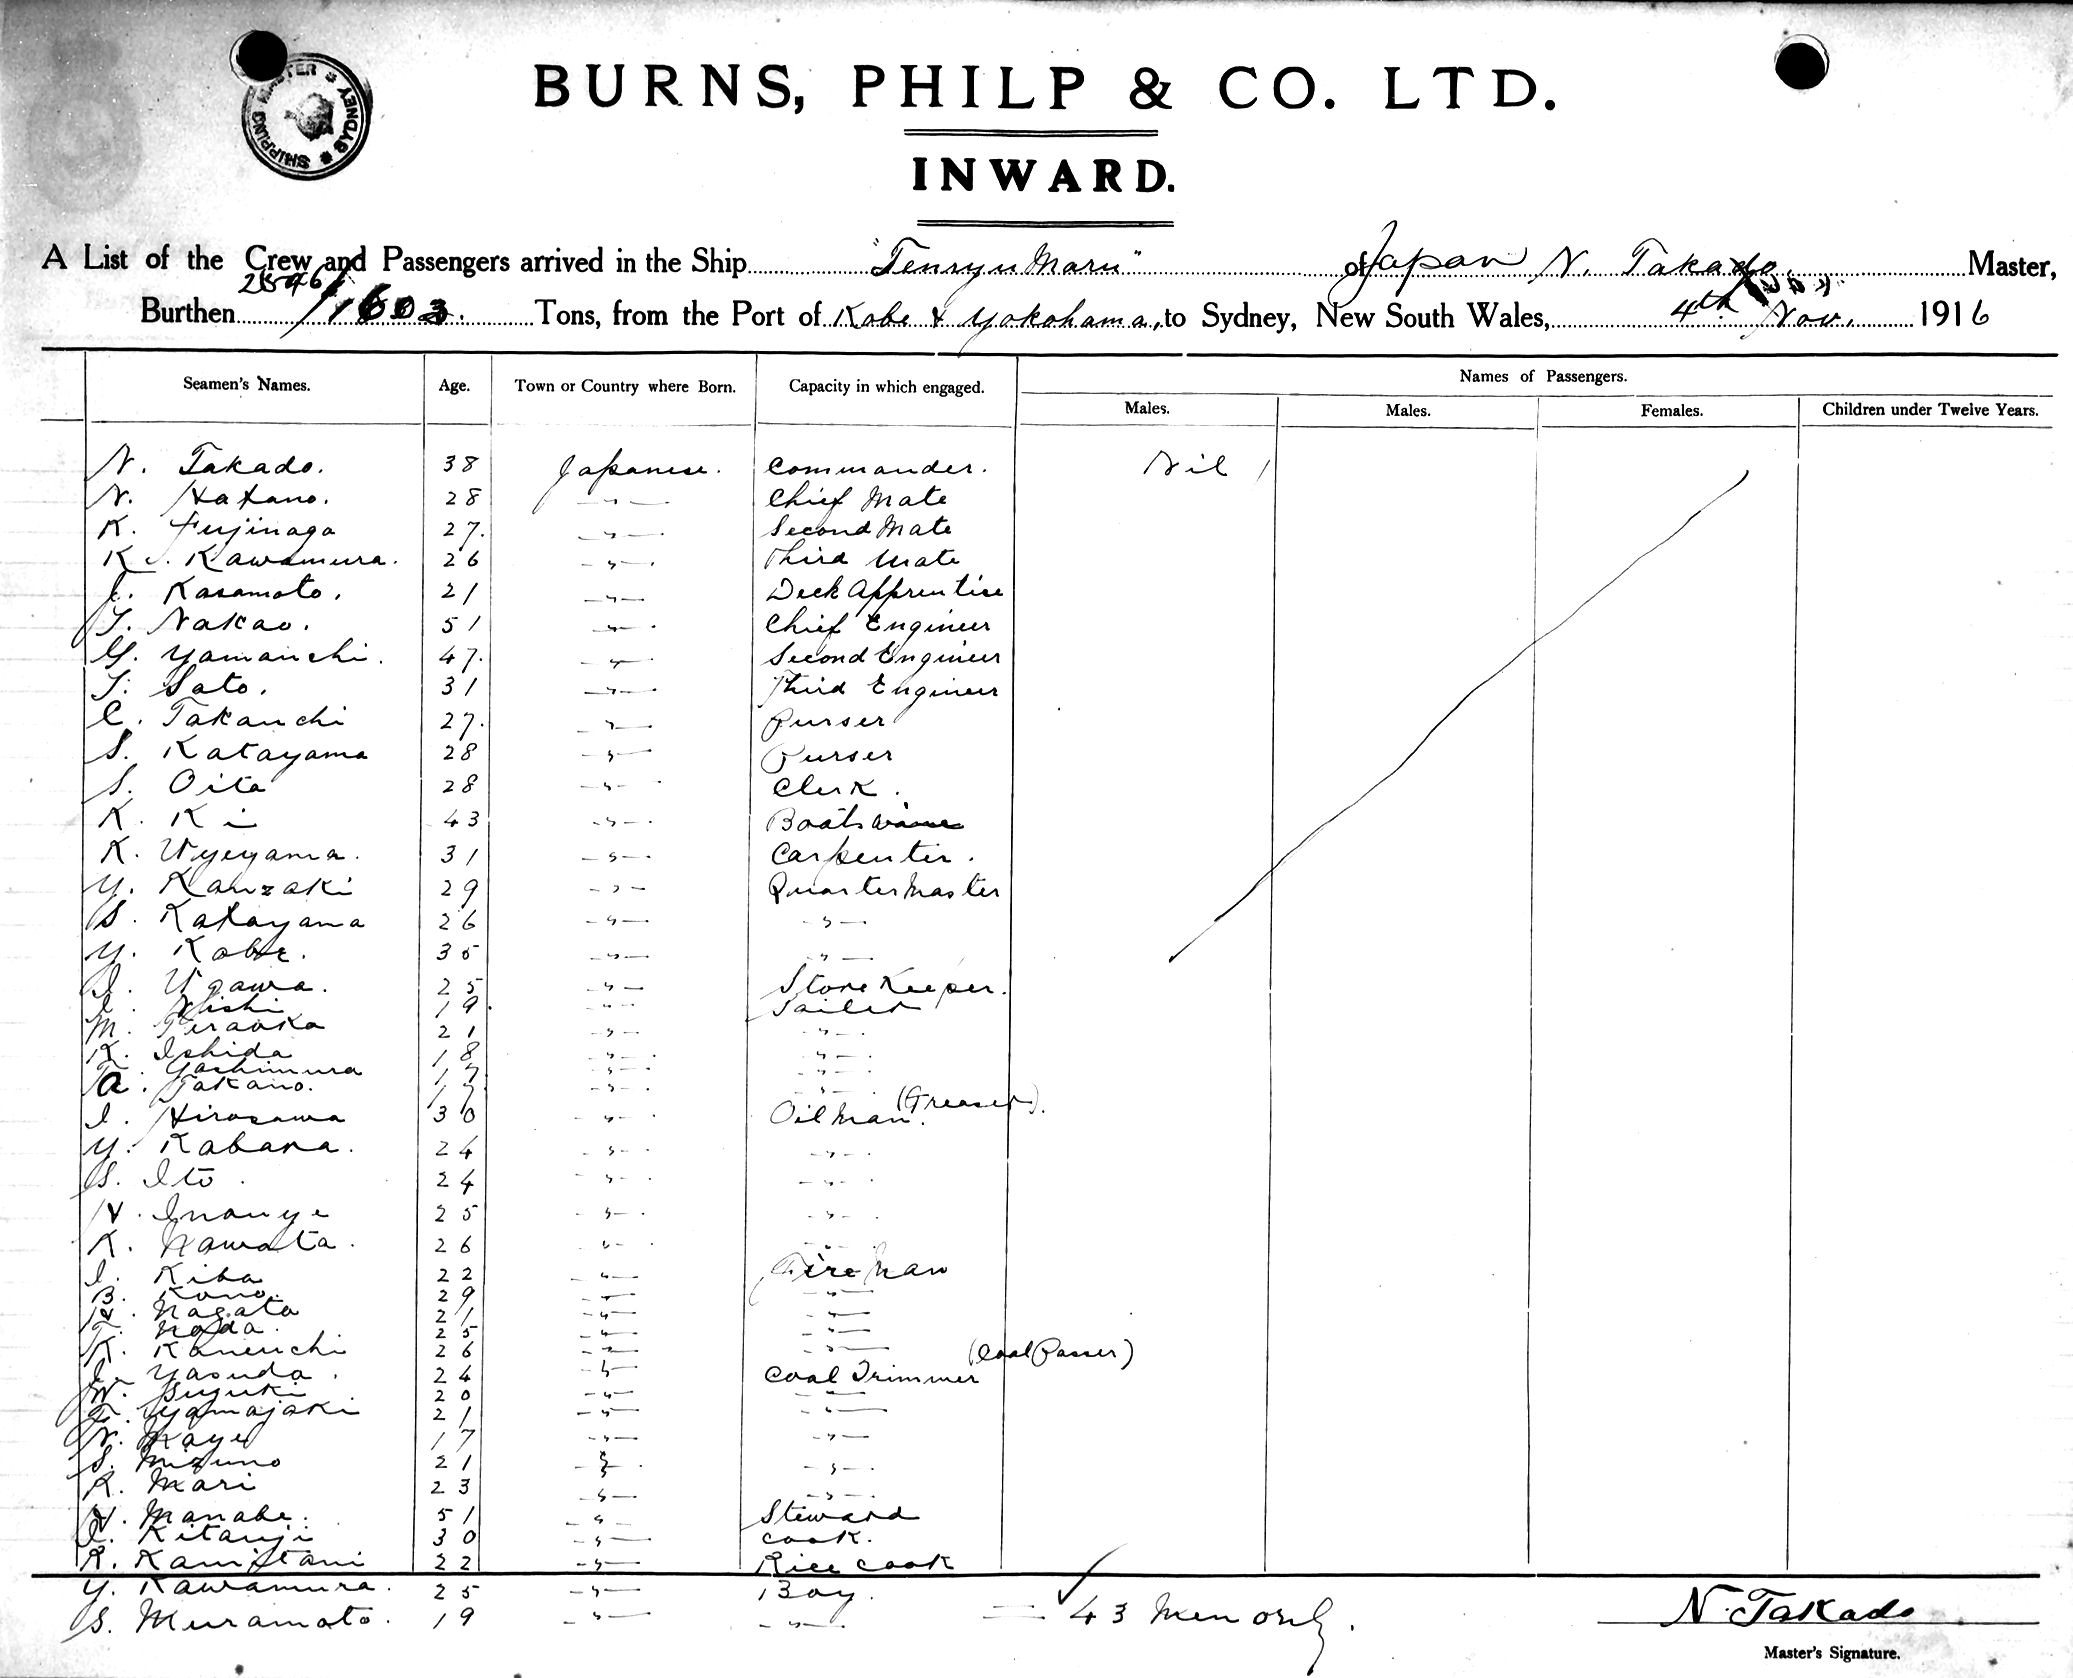 SHIPPING MASTER * SYDNEY *
BURNS, PHILP & CO. LTD.
INWARD.
A List of the Crew and Passengers arrived in the Ship "Tenryu Maru" of Japan N. Takado. Master,
Burthen 1603. Tons, from the Port of Kobe & Yokohama, to Sydney, New South Wales, 4th Nov. 1916
Names of Passengers.
Seamen's Names. Age. Town or Country where Born. Capacity in which engaged. Males. Males. Females. Children under Twelve Years.
N. Takado. 38 Japanese. Commander. Nil
N. Hatano. 28 -"- Chief Mate
K. Fujinaga 27. -"- Second Mate
K. Kawamura. 26 -"- Third Mate
Kasamoto. 21 -"- Deck Apprentise
T. Nakao. 51 -"- Chief Engineer
G. Yamauchi. 47. -"- Second Engineer
T. Sato. 31 -"- Third Engineer
C. Takauchi 27. -"- Purser
S. Katayama 28 -"- Purser
S. Oita 28 -"- Clerk.
K. Ki 43 -"- Boatswaine
K. Uyeyama. 31 -"- Carpenter.
Y. Kanzaki 29 -"- Quarter Master
S. Katayama 26 -"- -"-
Y. Kobe. 35 -"- -"-
I. Ugawa. 25 -"- Store Keeper.
I. Nishi 19. -"- Sailer
M. Teraoka 21 -"- -"-
K. Ishida 18 -"- -"-
T. Yoshimura 17 -"- -"-
a. Takano. 17 -"- -"-
I. Hirosawa 30 -"- Oilman. (Greaser).
Y. Kabara. 24 -"- -"-
S. Ito. 24 -"- -"-
H. Inouye 25 -"- -"-
K. Nawata. 26 -"- -"-
I. Kiba 22 -"- Fire Man
B. Kono. 29 -"- -"-
R. Nagata 21 -"- -"-
T. Noda. 25 -"- -"-
K. Kaneuchi 26 -"- -"-
I. Yasuda. 24 -"- Coal Trimmer (Coal Passer)
W. Suyuki 20 -"- -"-
T. Yamajaki 21 -"- -"-
N. Maye 17 -"- -"-
S. Mizuno 21 -"- -"-
R. Mari 23 -"- -"-
H. Manabe. 51 -"- Steward
I. Kitauji 30 -"- Cook.
R. Kamitani 22 -"- Rice Cook
Y. Kawamura. 25 -"- Boy.
S. Muramoto. 19 -"- -"- = 43 Men only.
N. Takado
Master's Signature.